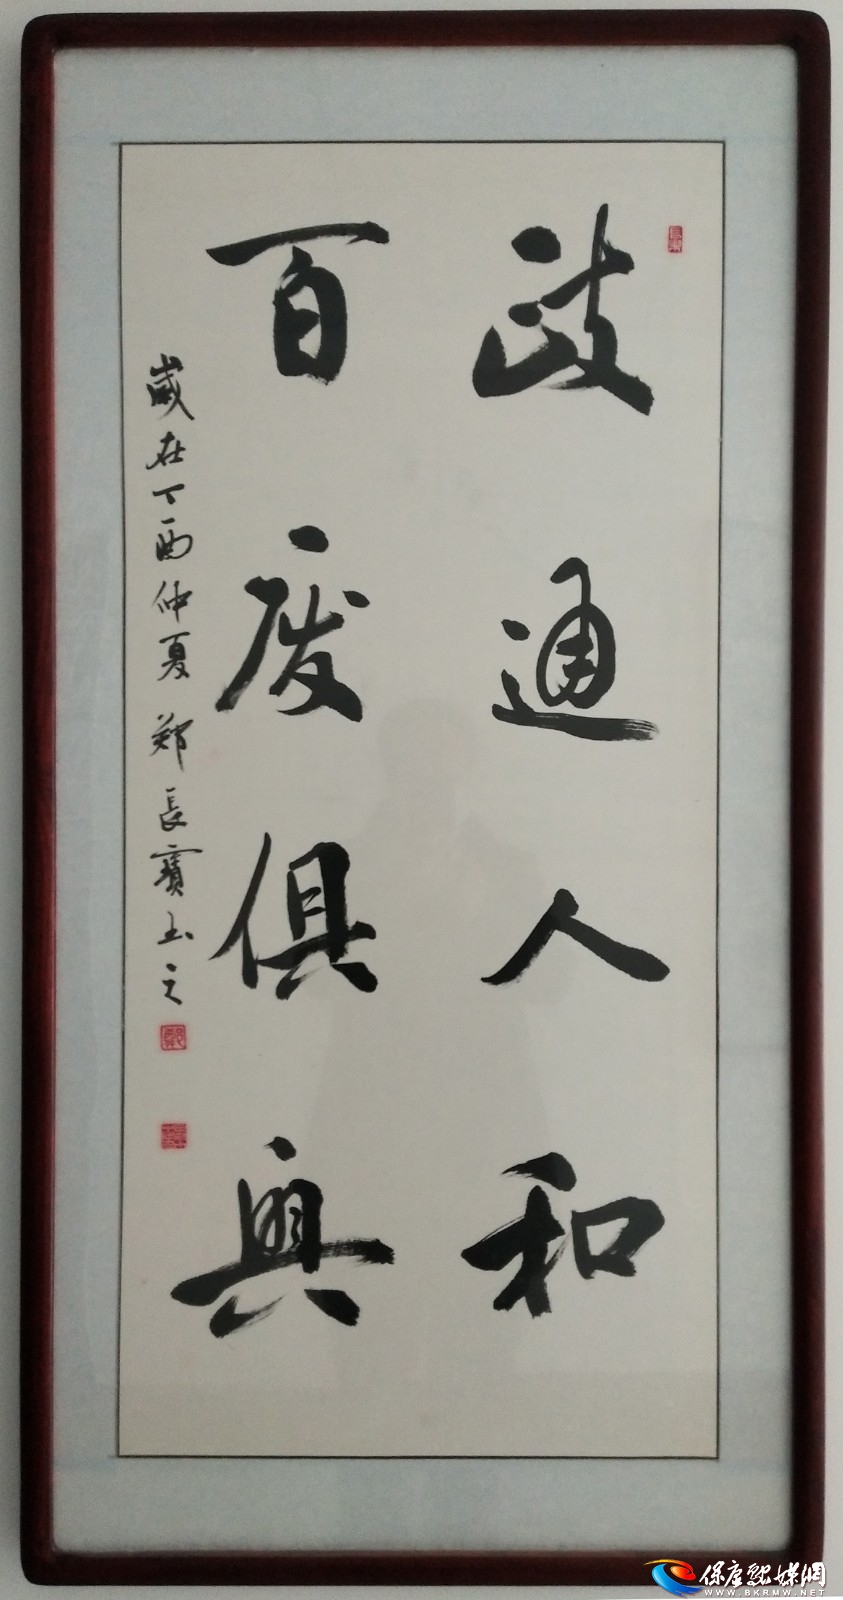 政通人和
百废俱興
歲在丁酉仲夏 郑長寶书之
保康融媒網
WWW.BKRMW.NET